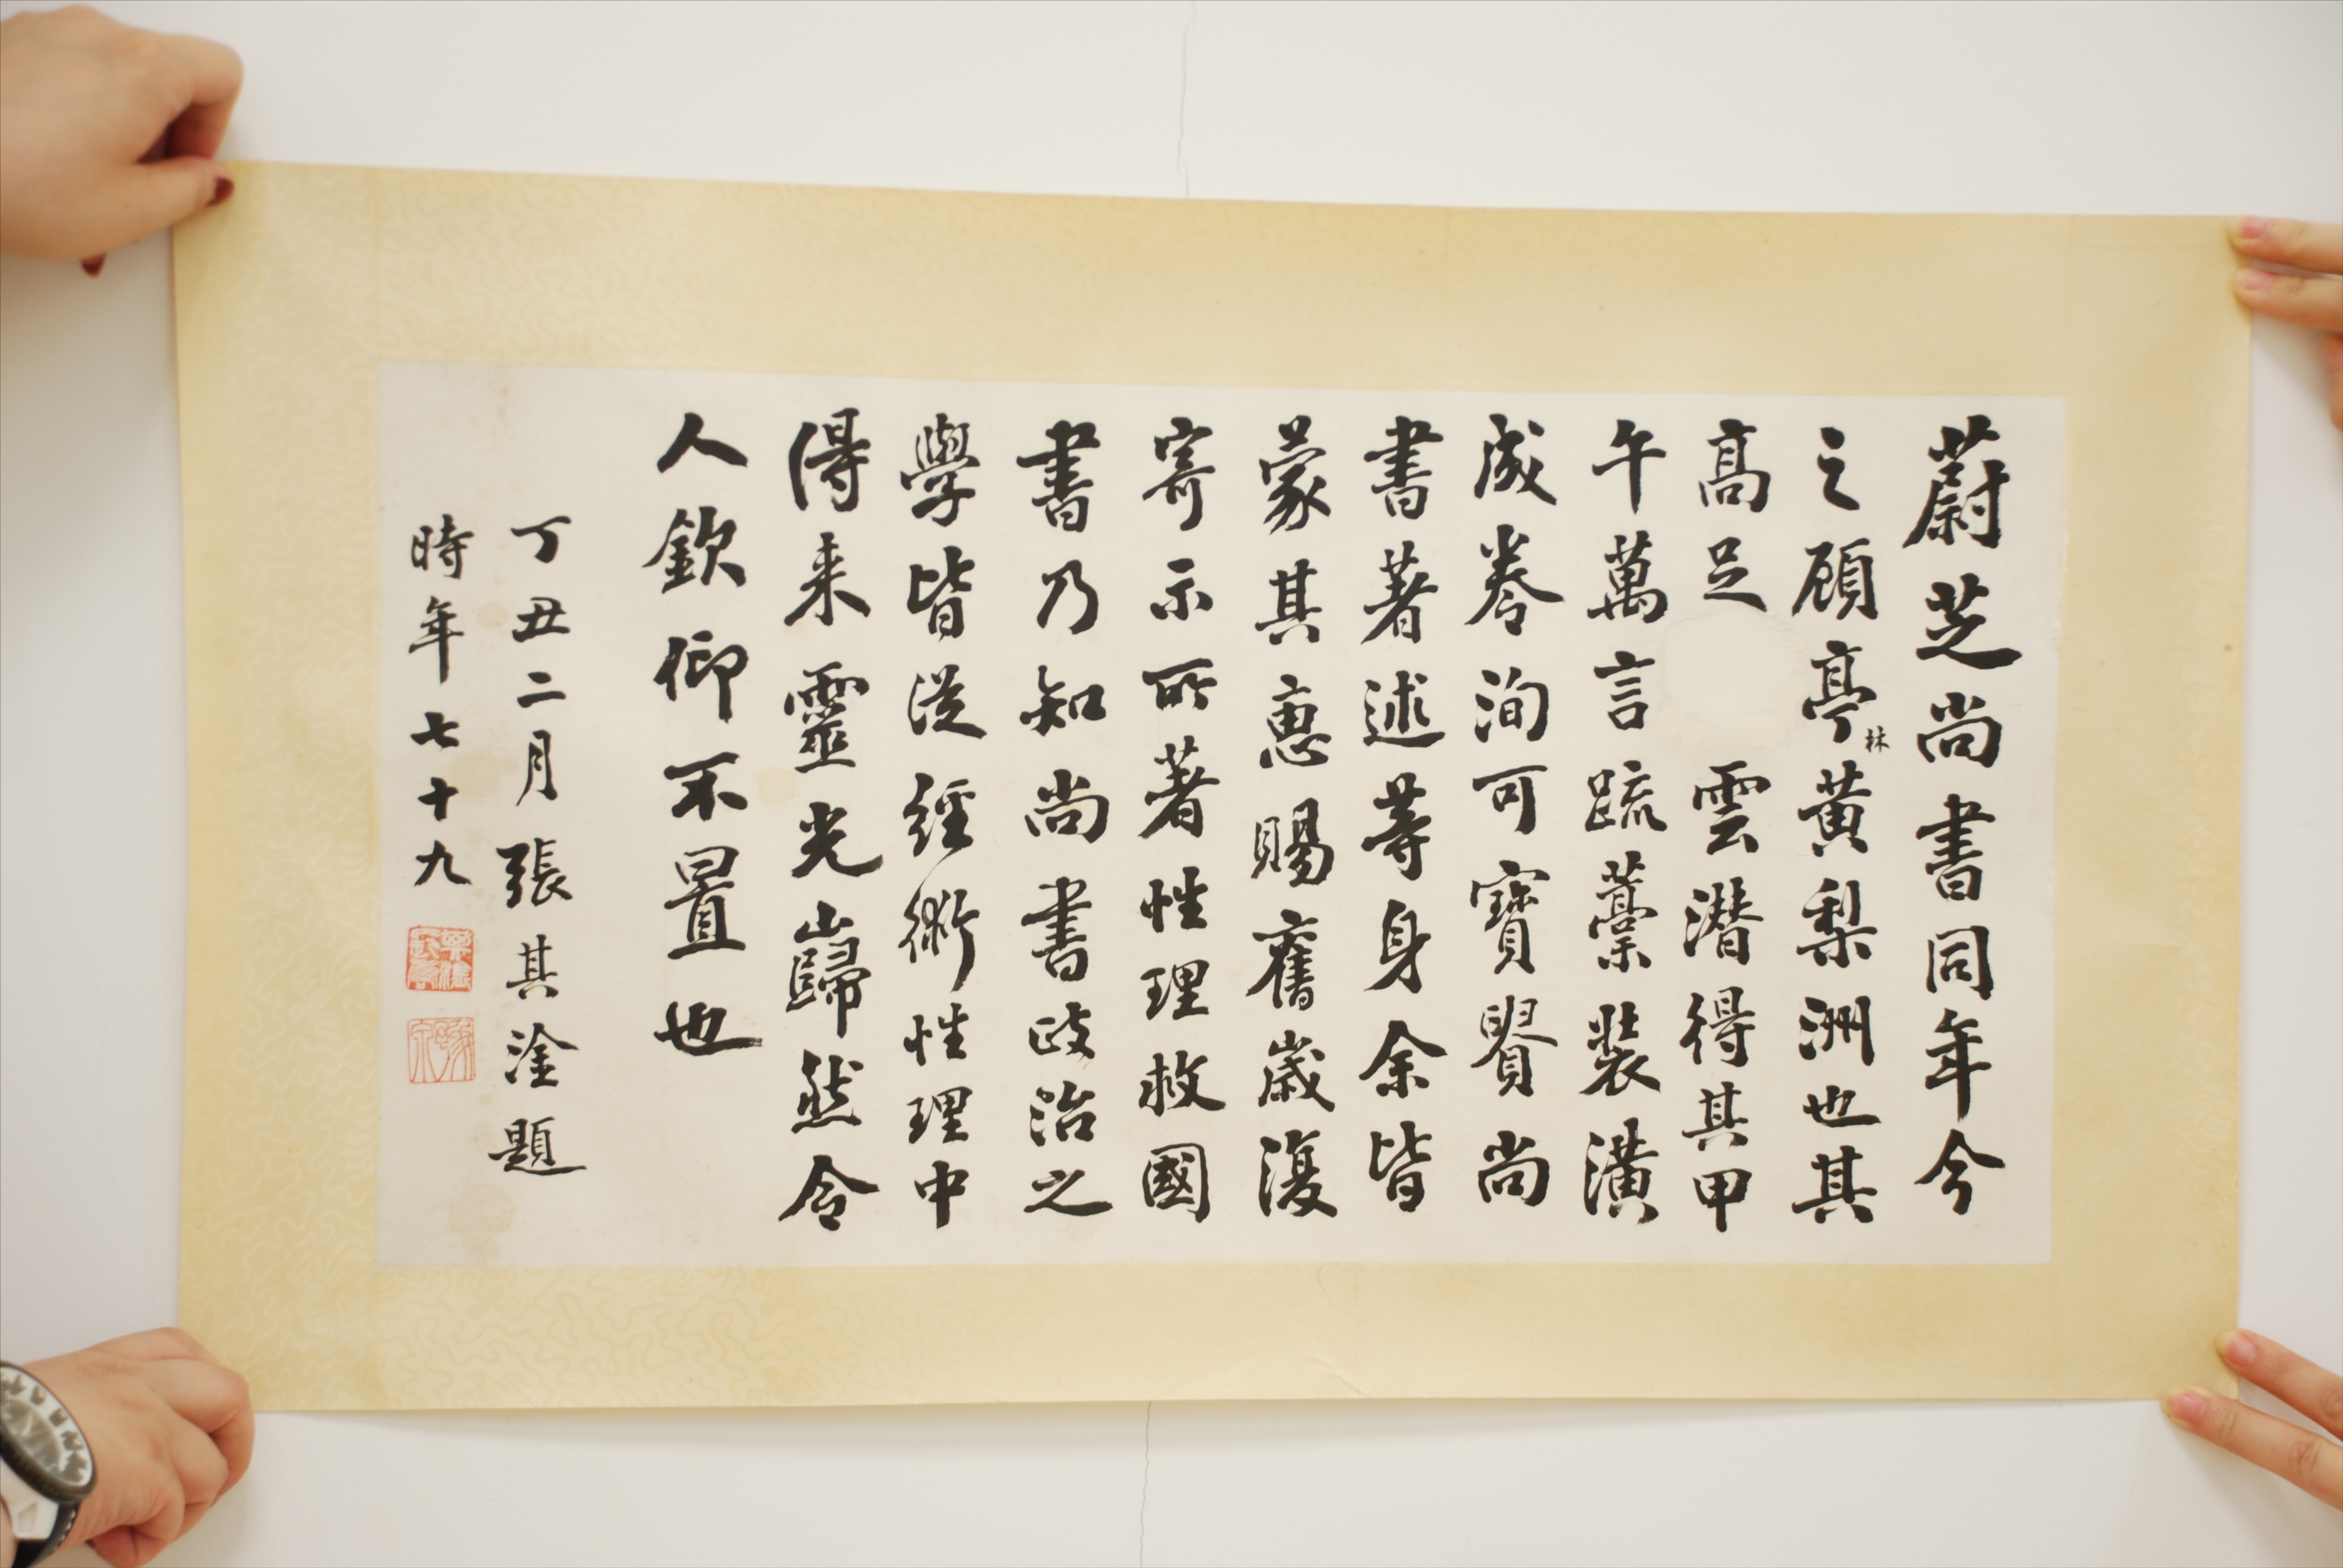 蔚芝尚書同年今
之顧亭林黃梨洲也其
高足 雲潛得其甲
午萬言疏藁裝潢
成卷洵可寶貴尚
書著述等身余皆
蒙其惠賜舊歲復
寄示所著性理救國
書乃知尚書政治之
學皆從經術性理中
得来靈光巋然令
人欽仰不置也
丁丑二月張其淦題
時年七十九